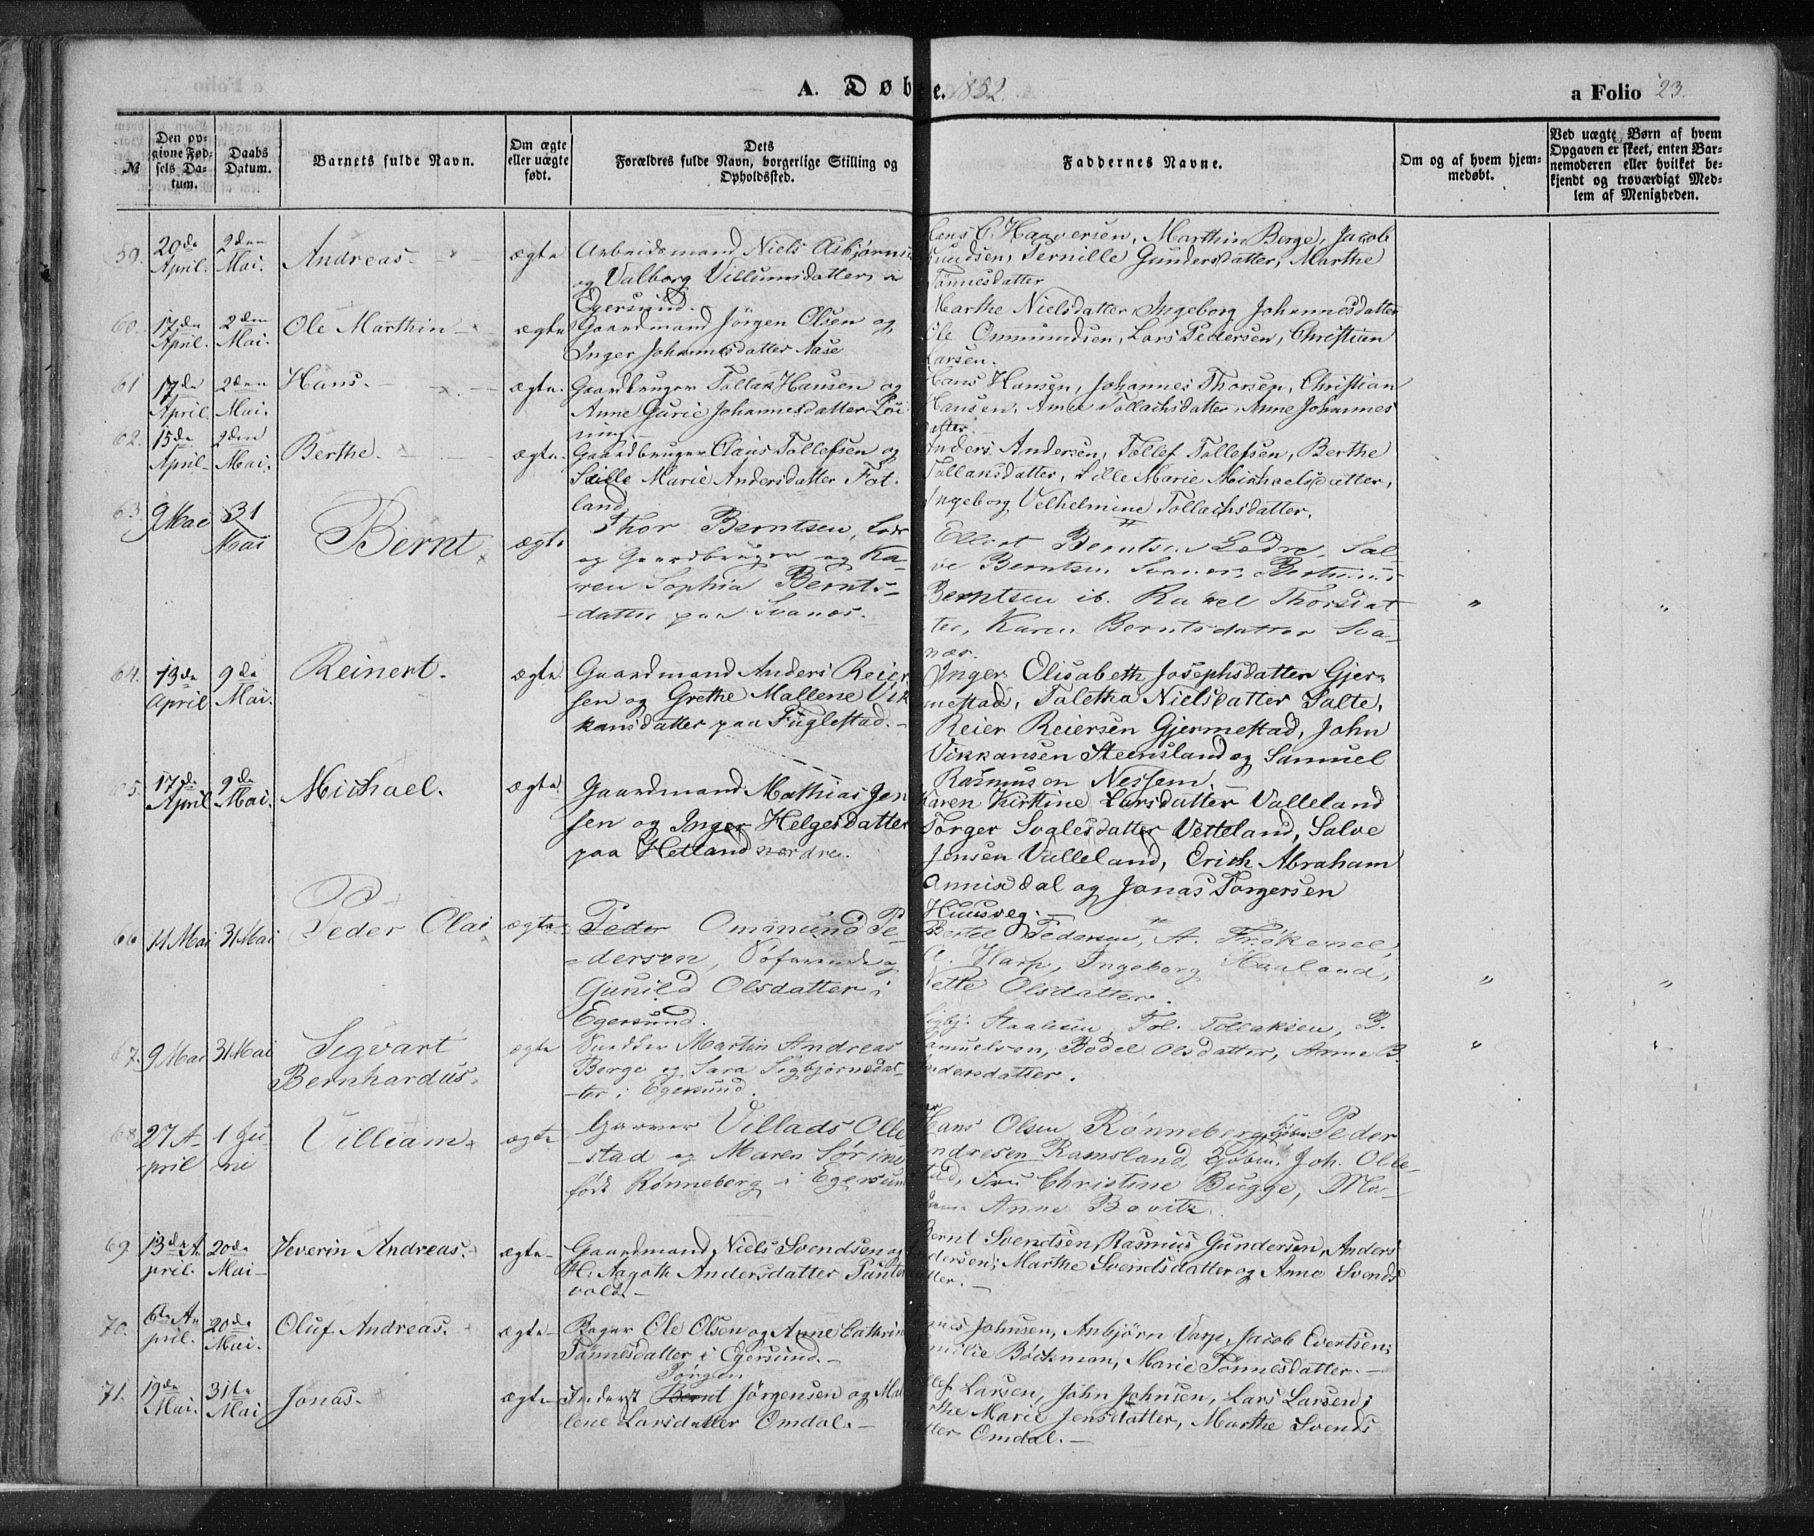 A. Døbte. 1852.
a Folio 23.
№ | Den opgivne Fødsels Datum. | Daabs Datum. | Barnets fulde Navn. | Om ægte eller uægte født. | Dets Forældres fulde Navn, borgerlige Stilling og Opholdssted. | Faddernes Navne. | Om og af hvem hjemmedøbt. | Ved uægte Børn af hvem Opgaven er skeet, enten Barnemoderen eller hvilket bekjendt og troværdigt Medlem af Menigheden.
59. 20de April. 2den Mai. Andreas. ægte
Arbeidsmand Niels Asbjørnsen
og Valborg Villumsdatter i
Egersund.
Hans C. Haaversen, Marthin Berge, Jacob
Knudsen, Pernille Gundersdatter, Marthe
Tønnesdatter
60. 17de April. 2den Mai. Ole Marthin ægte
Gaardmand Jørgen Olsen og
Inger Johannesdatter Aase
Marthe Nielsdatter Ingeborg Johannesdatter
Ole Ommundsen, Lars Pedersen, Christian
Larsen.
61 17de April. 2den Mai. Hans. ægte.
Gaardbruger Tollak Hansen og
Anne Gurie Johannesdatter
Hans Hansen, Johannes Thorsen, Christian
Hansen, Anne Tollachsdatter, Anne Johannes
datter.
62. 15de April 2den Mai. Berthe ægte.
Gaardbruger Claus Tollefsen og
Sille Marie Andersdatter Fot-
land
Anders Andersen, Tollef Tollefsen, Berthe
Tollaksdatter, Sille Marie Michaelsdatter,
Ingeborg Velhelmine Tollachsdatter.
63. 9 Mai 31 Mai Bernt ægte
Thor Berntsen, Lods
og Gaardbruger og Ka-
ren Sophia Bernts-
datter paa Svanes.
Ellert Berntsen Lodre, Sal-
ve Berntsen Svanes,
Berntsen ib. Rakel Thorsdat
ter, Karen Berntsdatter Sva-
nes.
64. 13de April 9de Mai. Reinert. ægte
Gaardmand Anders Reier
sen og Grethe Mallene Vik
kansdatter paa Fuglestad.
Inger Olisabeth Josephsdatter Gjer-
mestad, Taletha Nielsdatter Salte,
Reier Reiersen Gjermestad, John
Vikkansen Steensland og Samuel
Rasmusson Nessem.
65. 17de April 9de Mai. Michael. ægte
Gaardmand Mathias Jen
sen og Inger Helgesdatter
paa Hetland nordre.
Karen Kirstine Larsdatter Valleland
Torger Svalesdatter Vetteland, Salve
Jensen Valleland, Erich Abraham
Annisdal og Jonas Torgersen
Huusveg.
66. 11 Mai 31 Mai Peder Olai ægte
Peder Ommund Pe-
dersen, Søfarende og
Gunild Olsdatter i
Egersund.
Bertel Pedersen, A. Frøkenel,
Harp, Ingeborg Haaland,
Nette Olsdatter.
67. 9 Mai 31 Mai Sigvart Bernhardus. ægte
Snedker Martin Andreas
Berge og Sara Sigbjørnsdat-
ter i Egersund.
Sigbj. Staalesen, Tol. Tollaksen, B.
Samuelsen, Bodel Olsdatter, Anne B.
Andersdatter.
68. 27 April 1 Juni Villiam ægte
Garver Villads Olle-
stad og Maren Sørine
født Rønneberg i Egersund
Hans Olsen Rønneberg, Kjøbm. Peder
Andresen Ramsland, Joh. Olle-
stad, Fru Christine Bugge, Ma-
dame Anne Bovitz.
69. 13de April. 20de Mai Severin Andreas. ægte
Gaardmand Niels Svendsen og
H. Aagoth Andersdatter Puntervold.
Bernt Svendsen, Rasmus Gundersen, Anders
Andersen; Marthe Svendsdatter og Anne Svends
datter.
70. 6de April. 20de Mai. Oluf Andreas. ægte
Bager Ole Olsen og Anne Cathrine
Tønnesdatter i Egersund.
Johnsen, Anbjørn Varp, Jacob Evertsen;
Emilie Böckman, Marie Tønnesdatter.
71. 19de Mai. 31te Mai Jonas. ægte
Inderst Bernt Jørgen Jørgensen og Mal
lene Larsdatter Omdal.
Larsen, John Johnsen, Lars Larsen;
Marie Jensdatter, Marthe Svends
datter Omdal.